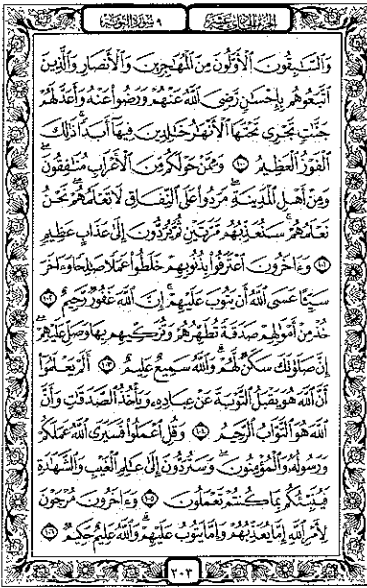 الجزء الحادي عشر ٩ سورة التوبة
وَٱلسَّٰبِقُونَ ٱلْأَوَّلُونَ مِنَ ٱلْمُهَٰجِرِينَ وَٱلْأَنصَارِ وَٱلَّذِينَ
ٱتَّبَعُوهُم بِإِحْسَٰنٍ رَّضِىَ ٱللَّهُ عَنْهُمْ وَرَضُوا۟ عَنْهُ وَأَعَدَّ لَهُمْ
جَنَّٰتٍ تَجْرِى تَحْتَهَا ٱلْأَنْهَٰرُ خَٰلِدِينَ فِيهَآ أَبَدًا ۚ ذَٰلِكَ
ٱلْفَوْزُ ٱلْعَظِيمُ ١٠٠ وَمِمَّنْ حَوْلَكُم مِّنَ ٱلْأَعْرَابِ مُنَٰفِقُونَ ۖ
وَمِنْ أَهْلِ ٱلْمَدِينَةِ ۖ مَرَدُوا۟ عَلَى ٱلنِّفَاقِ لَا تَعْلَمُهُمْ ۖ نَحْنُ
نَعْلَمُهُمْ ۚ سَنُعَذِّبُهُم مَّرَّتَيْنِ ثُمَّ يُرَدُّونَ إِلَىٰ عَذَابٍ عَظِيمٍ
١٠١ وَءَاخَرُونَ ٱعْتَرَفُوا۟ بِذُنُوبِهِمْ خَلَطُوا۟ عَمَلًا صَٰلِحًا وَءَاخَرَ
سَيِّئًا عَسَى ٱللَّهُ أَن يَتُوبَ عَلَيْهِمْ ۚ إِنَّ ٱللَّهَ غَفُورٌ رَّحِيمٌ ١٠٢
خُذْ مِنْ أَمْوَٰلِهِمْ صَدَقَةً تُطَهِّرُهُمْ وَتُزَكِّيهِم بِهَا وَصَلِّ عَلَيْهِمْ ۖ
إِنَّ صَلَوٰتَكَ سَكَنٌ لَّهُمْ ۗ وَٱللَّهُ سَمِيعٌ عَلِيمٌ ١٠٣ أَلَمْ يَعْلَمُوٓا۟
أَنَّ ٱللَّهَ هُوَ يَقْبَلُ ٱلتَّوْبَةَ عَنْ عِبَادِهِۦ وَيَأْخُذُ ٱلصَّدَقَٰتِ وَأَنَّ
ٱللَّهَ هُوَ ٱلتَّوَّابُ ٱلرَّحِيمُ ١٠٤ وَقُلِ ٱعْمَلُوا۟ فَسَيَرَى ٱللَّهُ عَمَلَكُمْ
وَرَسُولُهُۥ وَٱلْمُؤْمِنُونَ ۖ وَسَتُرَدُّونَ إِلَىٰ عَٰلِمِ ٱلْغَيْبِ وَٱلشَّهَٰدَةِ
فَيُنَبِّئُكُم بِمَا كُنتُمْ تَعْمَلُونَ ١٠٥ وَءَاخَرُونَ مُرْجَوْنَ
لِأَمْرِ ٱللَّهِ إِمَّا يُعَذِّبُهُمْ وَإِمَّا يَتُوبُ عَلَيْهِمْ ۗ وَٱللَّهُ عَلِيمٌ حَكِيمٌ ١٠٦
٢٠٣